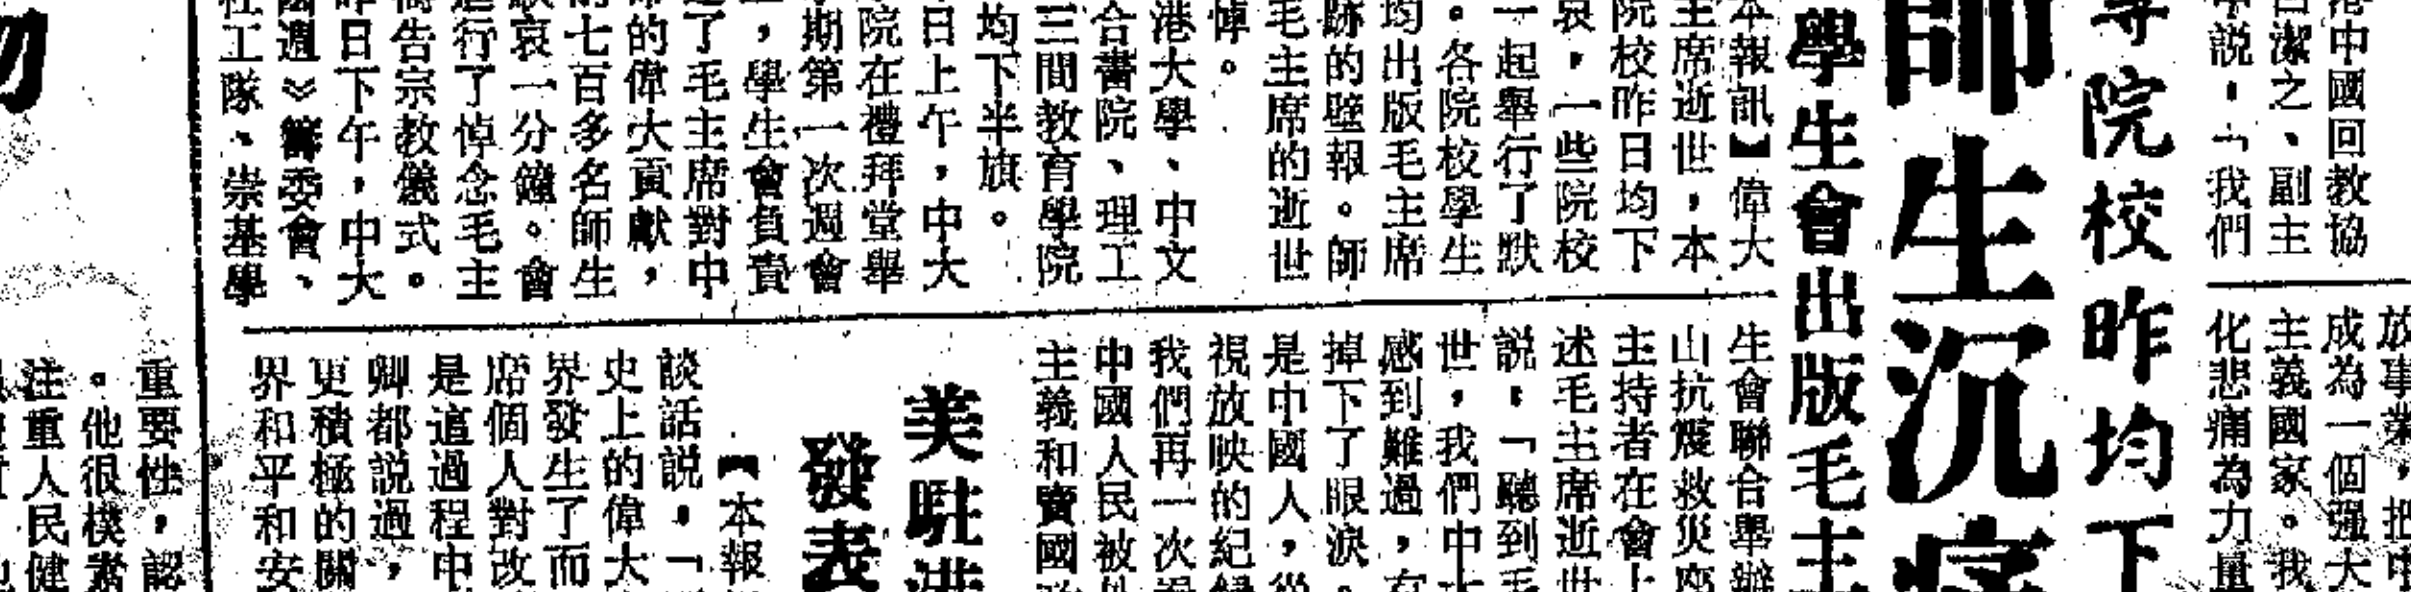 港中國回教協
白潔之、副主
中説，「我們
放事業，把中
成為一個强大
主義國家。我
化悲痛為力量
專院校昨均下
師生沉痛
學生會出版毛主
本報訊】偉大
主席逝世，本
院校昨日均下
哀，一些院校
一起舉行了默
。各院校學生
均出版毛主席
跡的壁報。師
毛主席的逝世
悼。
港大學、中文
合書院、理工
三間教育學院
均下半旗。
日上午，中大
院在禮拜堂舉
期第一次週會
，學生會負責
了毛主席對中
的偉大貢獻，
七百多名師生
默哀一分鐘。會
進行了悼念毛主
禱告宗教儀式。
昨日下午，中大
國週》籌委會、
社工隊、崇基學
生會聯合舉辦
山抗震救災座
主持者在會上
述毛主席逝世
説：「聽到毛
世，我們中
感到難過，有
掉下了眼淚。
是中國人，從
視放映的紀錄
我們再一次
中國人民被
主義和賣國
美駐港
發表
【本報
談話説，「
史上的偉大
界發生了而
席個人對改
是這過程中
卿都説過，
更積極的關
界和平和安
物
重要性，認
。他很樸素
注重人民健